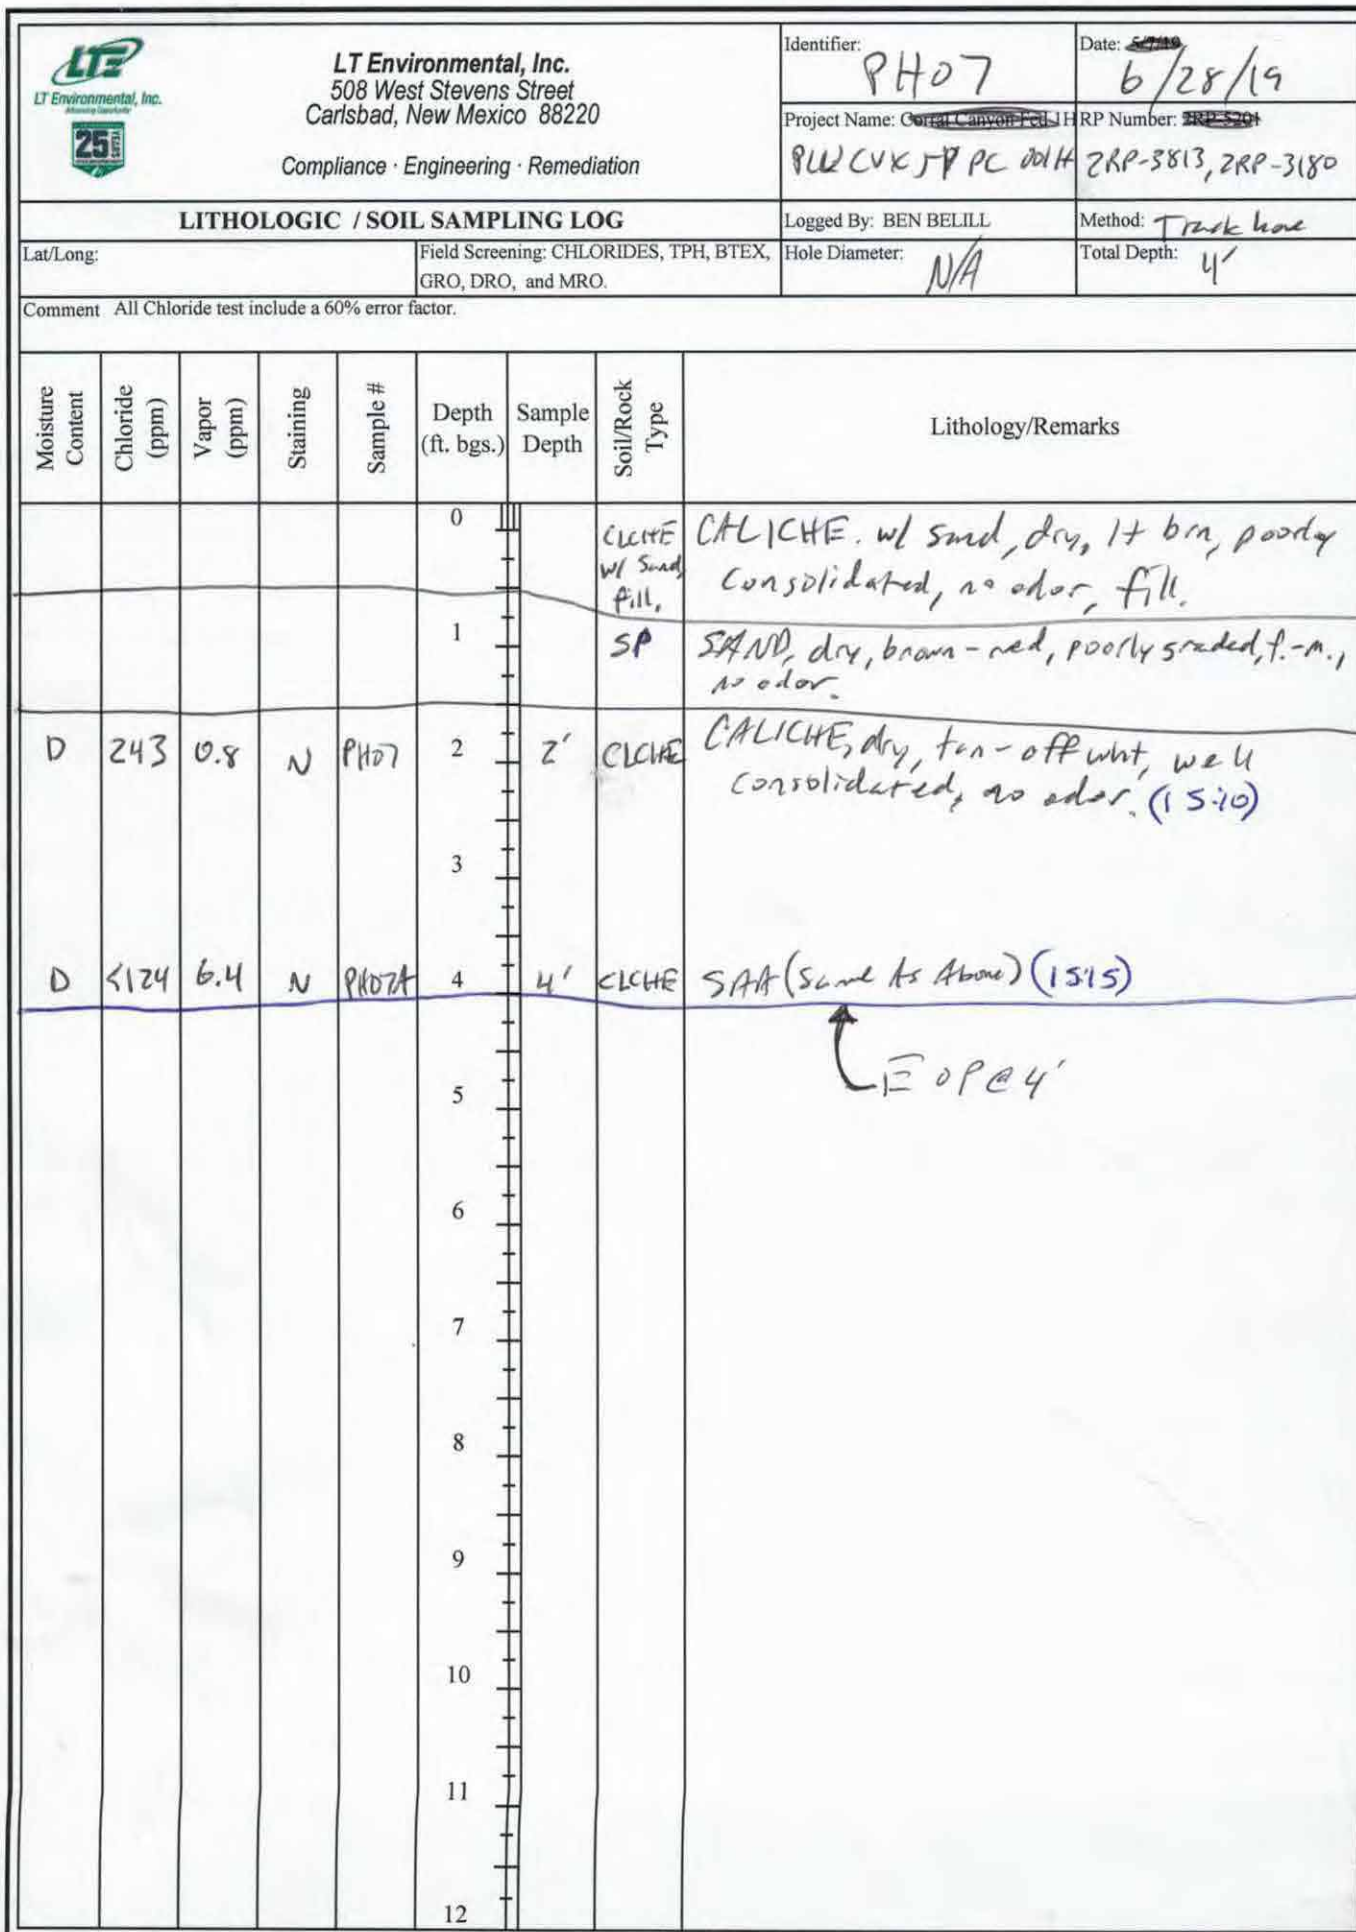 LTE
LT Environmental, Inc.
25 YEARS
LT Environmental, Inc.
508 West Stevens Street
Carlsbad, New Mexico 88220
Compliance · Engineering · Remediation
Identifier:
PH07
Date: 
6/28/19
Project Name: Corral Canyon Fed 1H
PLU CVX JV PC 001H
RP Number: 2RP-5201
2RP-3813, 2RP-3180
LITHOLOGIC / SOIL SAMPLING LOG
Logged By: BEN BELILL
Method: Track hoe
Lat/Long:
Field Screening: CHLORIDES, TPH, BTEX,
GRO, DRO, and MRO.
Hole Diameter:
N/A
Total Depth: 4'
Comment All Chloride test include a 60% error factor.
Moisture
Content
Chloride
(ppm)
Vapor
(ppm)
Staining
Sample #
Depth
(ft. bgs.)
Sample
Depth
Soil/Rock
Type
Lithology/Remarks
0
CLCHE
w/ Sand,
fill,
CALICHE. w/ sand, dry, lt brn, poorly
consolidated, no odor, fill.
1 SP SAND, dry, brown-red, poorly graded, f.-m.,
no odor.
D 243 0.8 N PH07 2 2' CLCHE CALICHE, dry, tan-off wht, well
consolidated, no odor. (1510)
3
D <124 6.4 N PH07A 4 4' CLCHE SAA (Same As Above) (1515)
EOP@4'
5
6
7
8
9
10
11
12